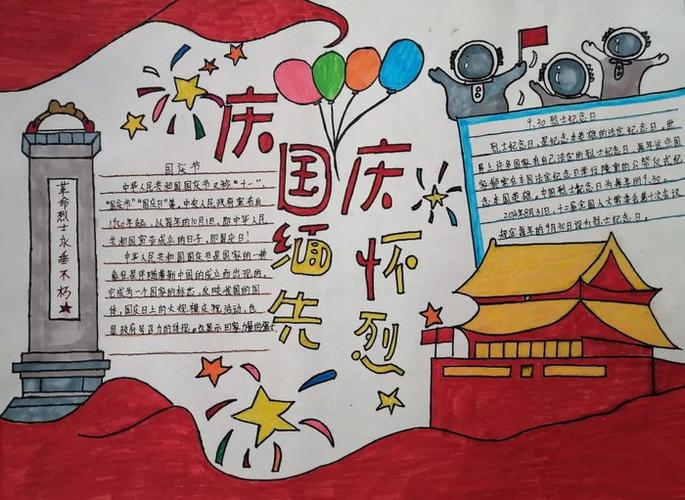 庆国庆
缅怀先烈
革命烈士永垂不朽
国庆节
中华人民共和国国庆节又称"十一"、
"国庆节""国庆日"
年起,以每年的10月1日,即中华人民
共和国宣告成立的日子,即国庆日!
中华人民共和国国庆节是国家的一种
象征是伴随着新中国的成立而出现的。
它成为一个国家的标志,反映我国的国
体,国庆日上的大规模庆祝活动,也
是政府号召力的体现。也显示国家力量的强大
9.30烈士纪念日
烈士纪念日,是纪念英雄的法定纪念日,世
界上许多国家有自己法定的烈士纪念日,每年这些国
家都需在本国法定纪念日举行隆重的公祭仪式纪
念本国英雄。中国烈士纪念日为每年的9.30。
2014年8月31日,十二届全国人大常委会第十次会议
规定每年的9月30日设为烈士纪念日。